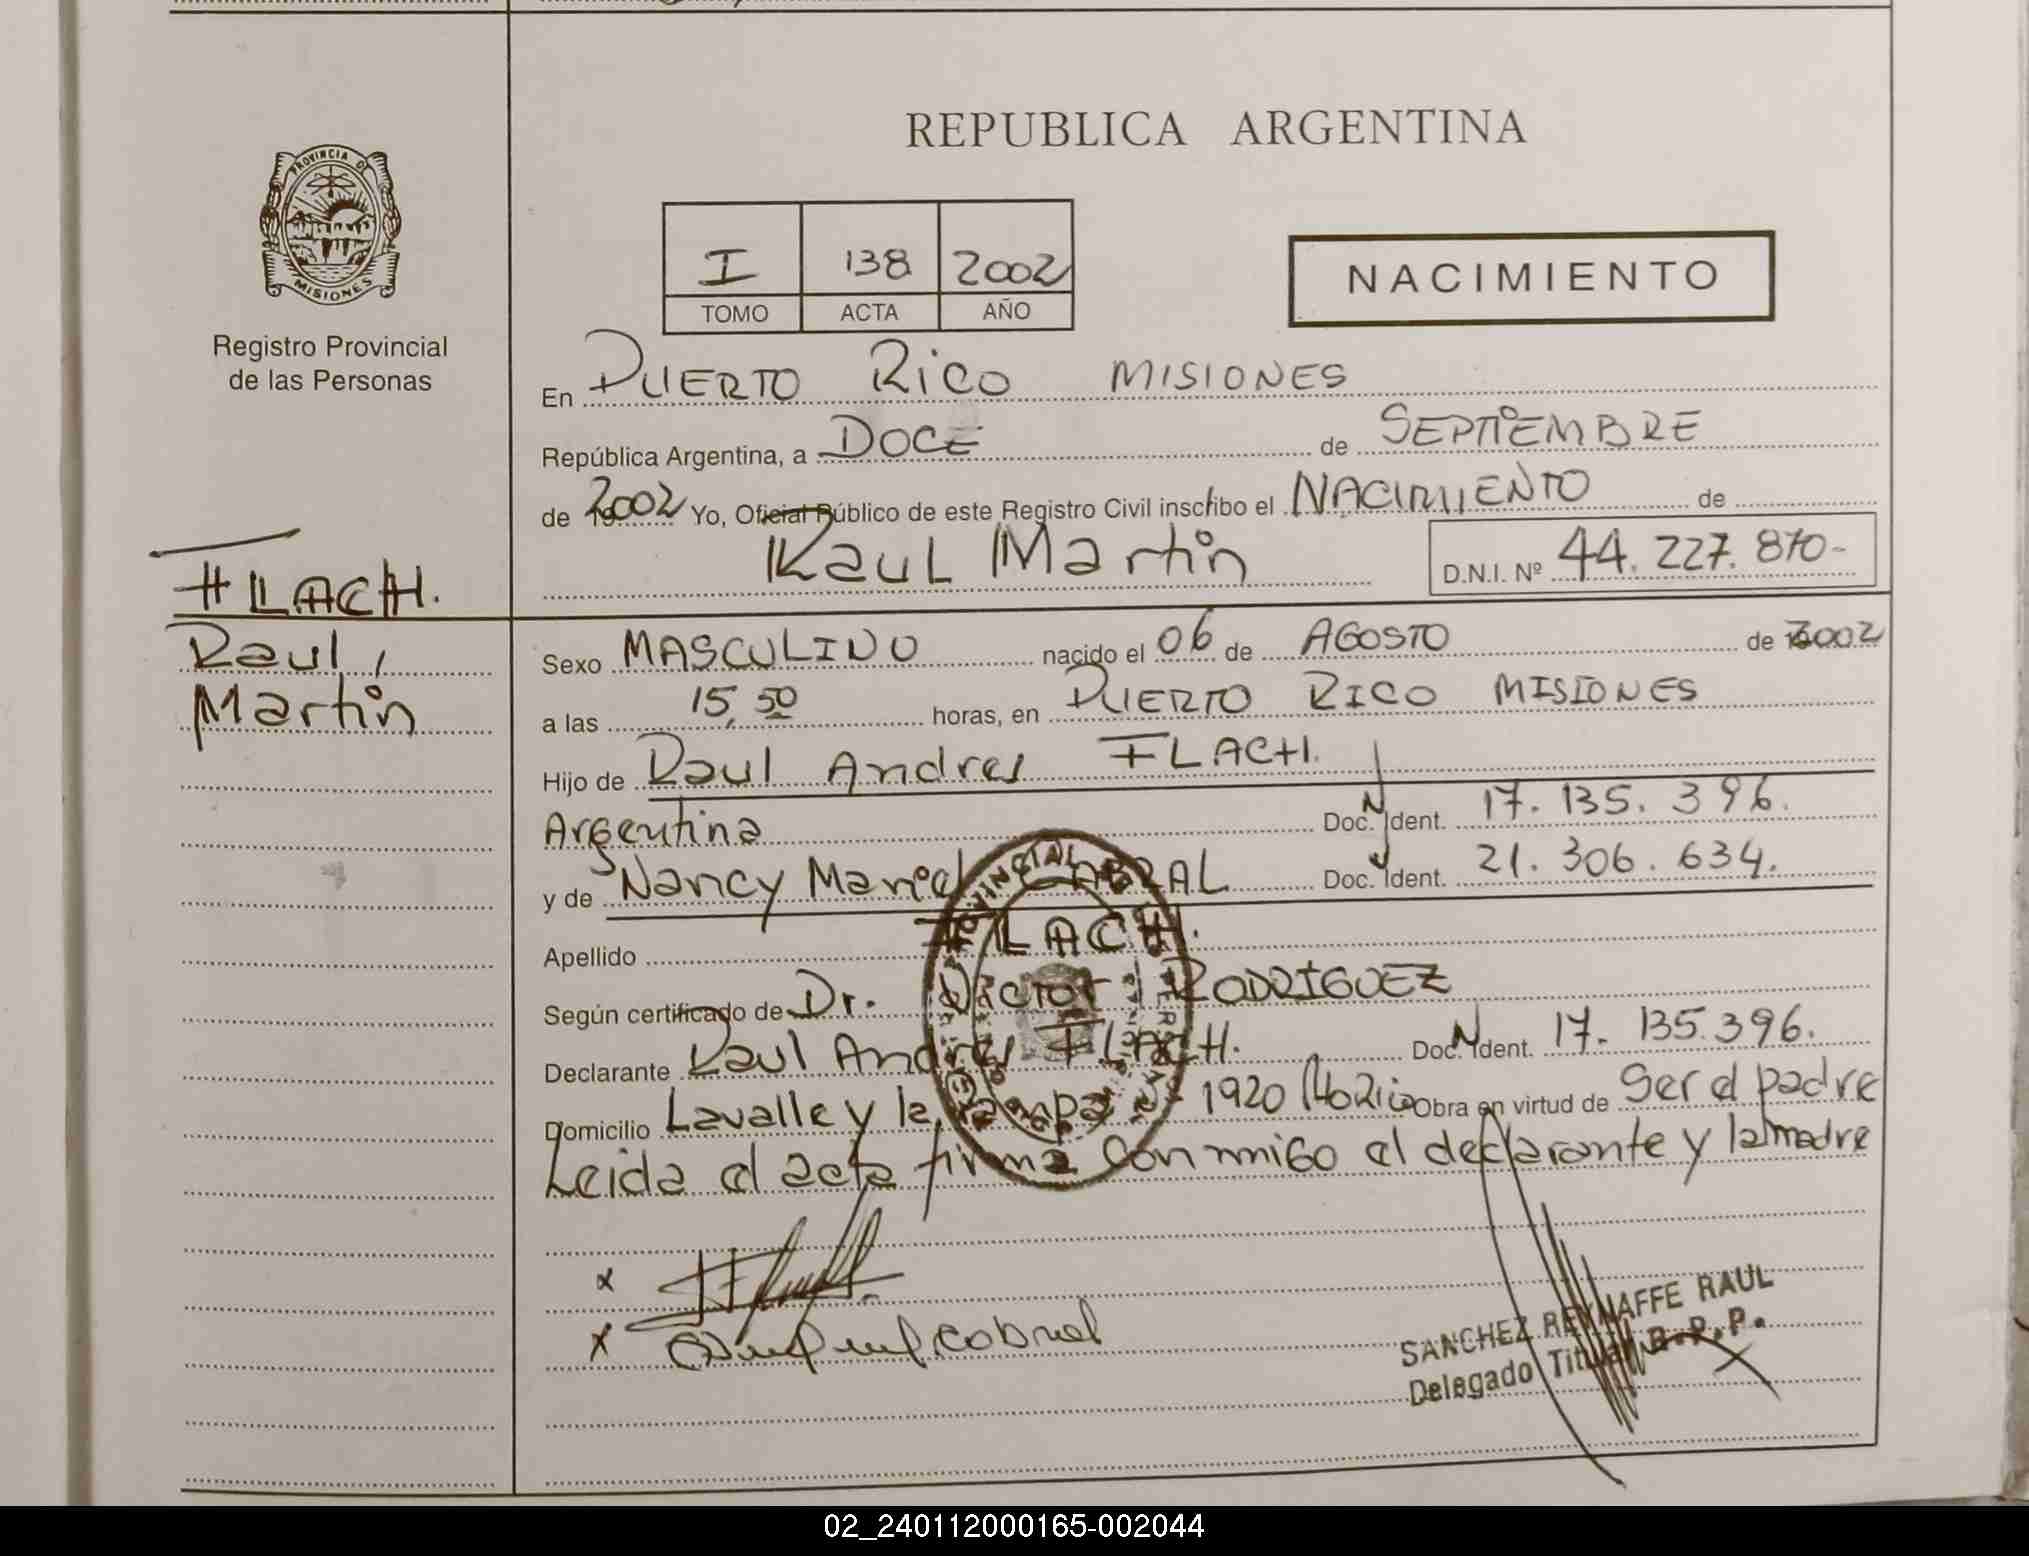 REPUBLICA ARGENTINA
PROVINCIA DE
MISIONES
Registro Provincial
de las Personas
I 138 2002
TOMO ACTA AÑO
NACIMIENTO
En PUERTO RICO MISIONES
República Argentina, a DOCE de SEPTIEMBRE
de 2002 Yo, Oficial Público de este Registro Civil inscribo el NACIMIENTO de
Raul Martin D.N.I. Nº 44.227.870-
FLACH.
Raul,
Martin
Sexo MASCULINO nacido el 06 de AGOSTO de 2002
a las 15,50 horas, en PUERTO RICO MISIONES
Hijo de Raul Andres FLACH.
Argentina Doc. N Ident. 17.135.396.
y de Nancy Mariel CABRAL Doc. Ident. 21.306.634.
Apellido FLACH.
Según certificado de Dr. Victor RODRIGUEZ
Declarante Raul Andres FLACH. Doc. N Ident. 17.135.396.
Domicilio Lavalle y la Pampa Nº 1920 Pto Rico Obra en virtud de Ser el padre
Leida el acta firma conmigo el declarante y la madre
x
x
SANCHEZ REYNAFFE RAUL
Delegado Titular R.P.P.
02_240112000165-002044